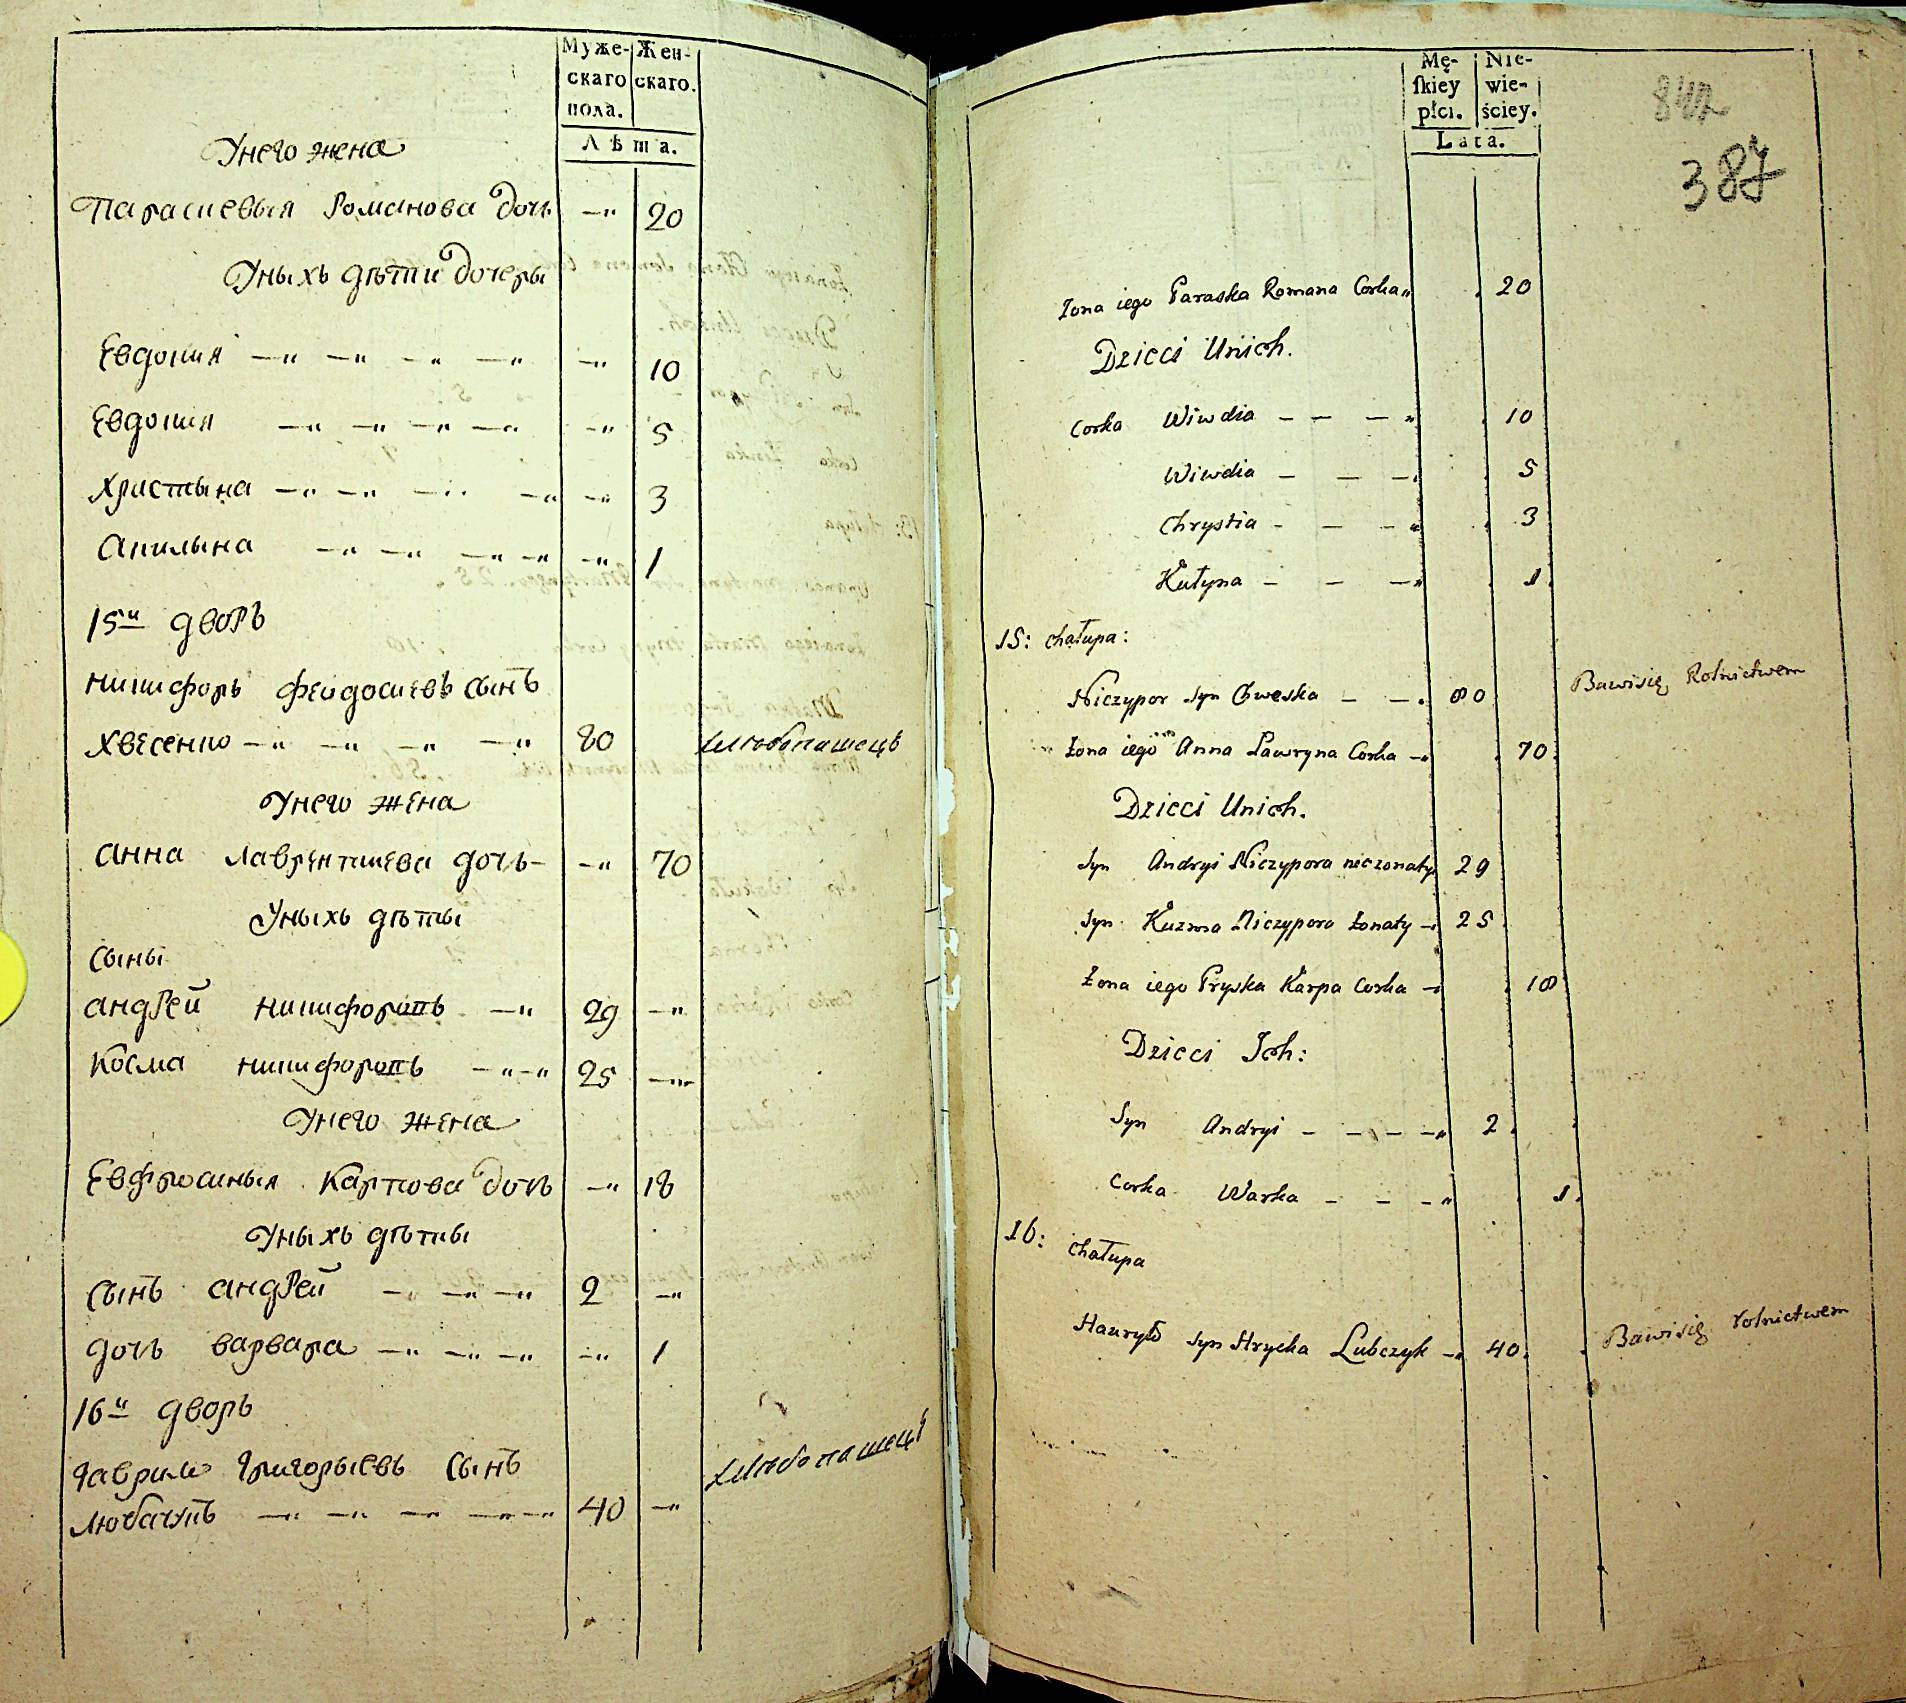 Муже-
скаго
пола.
Жен-
скаго.
Лѣта.
Унего жена
Параскевыя Романова дочь —" 20
Уныхъ дѣти дочеры
Евдокия —" —" —" —" —" 10
Евдокия —" —" —" —" —" 5
Христына —" —" —" —" —" 3
Акилына —" —" —" —" —" 1
15й дворъ
Никифоръ Феодосиевъ сынъ
Хвесенко —" —" —" —" 80 хлѣбопашецъ
Унего жена
Анна Лаврентиева дочь— —" 70
Уныхъ дѣты
Сыны
Андрей Никифоровъ —" 29 —"
Косма Никифоровъ —"—" 25 —"
Унего жена
Евфросиныя Карпова дочь —" 18
Уныхъ дѣты
Сынъ Андрей —" —" —" 2 —"
Дочь Варвара —" —" —" —" 1
16й дворъ
Гаврило Григорыевъ сынъ хлѣбопашецъ
Любачукъ —" —" —" —"—" 40 —"
Mę-
ſkiey
płci.
Nie-
wie-
ściey.
Lata.
847
387
Żona iego Paraska Romana Corka" 20
Dzieci Unich.
Corka Wiwdia — — —" 10
Wiwdia — — —" 5
Chrystia — — —" 3
Kułyna — — —" 1
15: chałupa:
Niczypor Syn Chweska — —" 80 Bawisię Rolnictwem
Żona iego Anna Lawryna Corka —" 70
Dzieci Unich.
Syn Andryi Niczypora nieżonaty 29
Syn Kuzma Niczypora żonaty —" 25
Żona iego Pryska Karpa Corka —" 18
Dzieci Ich:
Syn Andryi — — — —" 2
Corka Warka — — —" 1
16: chałupa
Hauryło Syn Hrycka Lubczyk —" 40 Bawisię rolnictwem